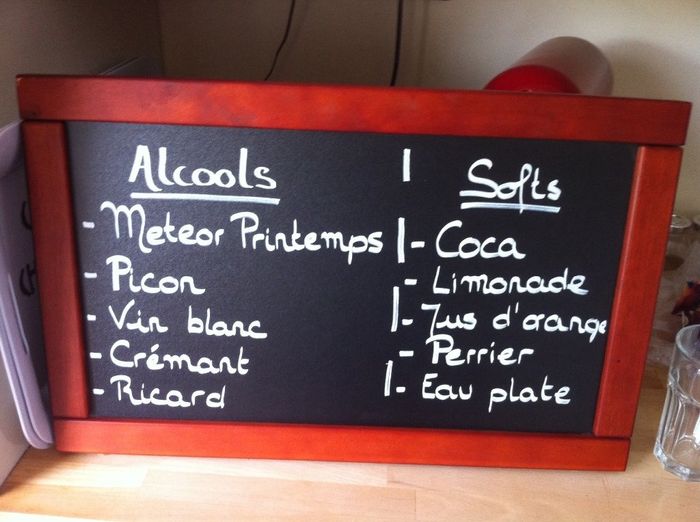 Alcools
- Meteor Printemps
- Picon
- Vin blanc
- Crémant
- Ricard
Softs
- Coca
- Limonade
- Jus d'orange
- Perrier
- Eau plate